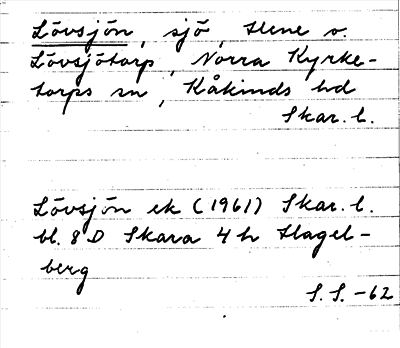 Lövsjön, sjö, Hene o.
Lövsjötorp, Norra Kyrke-
torps sn, Kåkinds hd
Skar. l.
Lövsjön ek (1961) Skar. l.
bl. 8 D Skara 4 h Hagel-
berg
S. S. -62